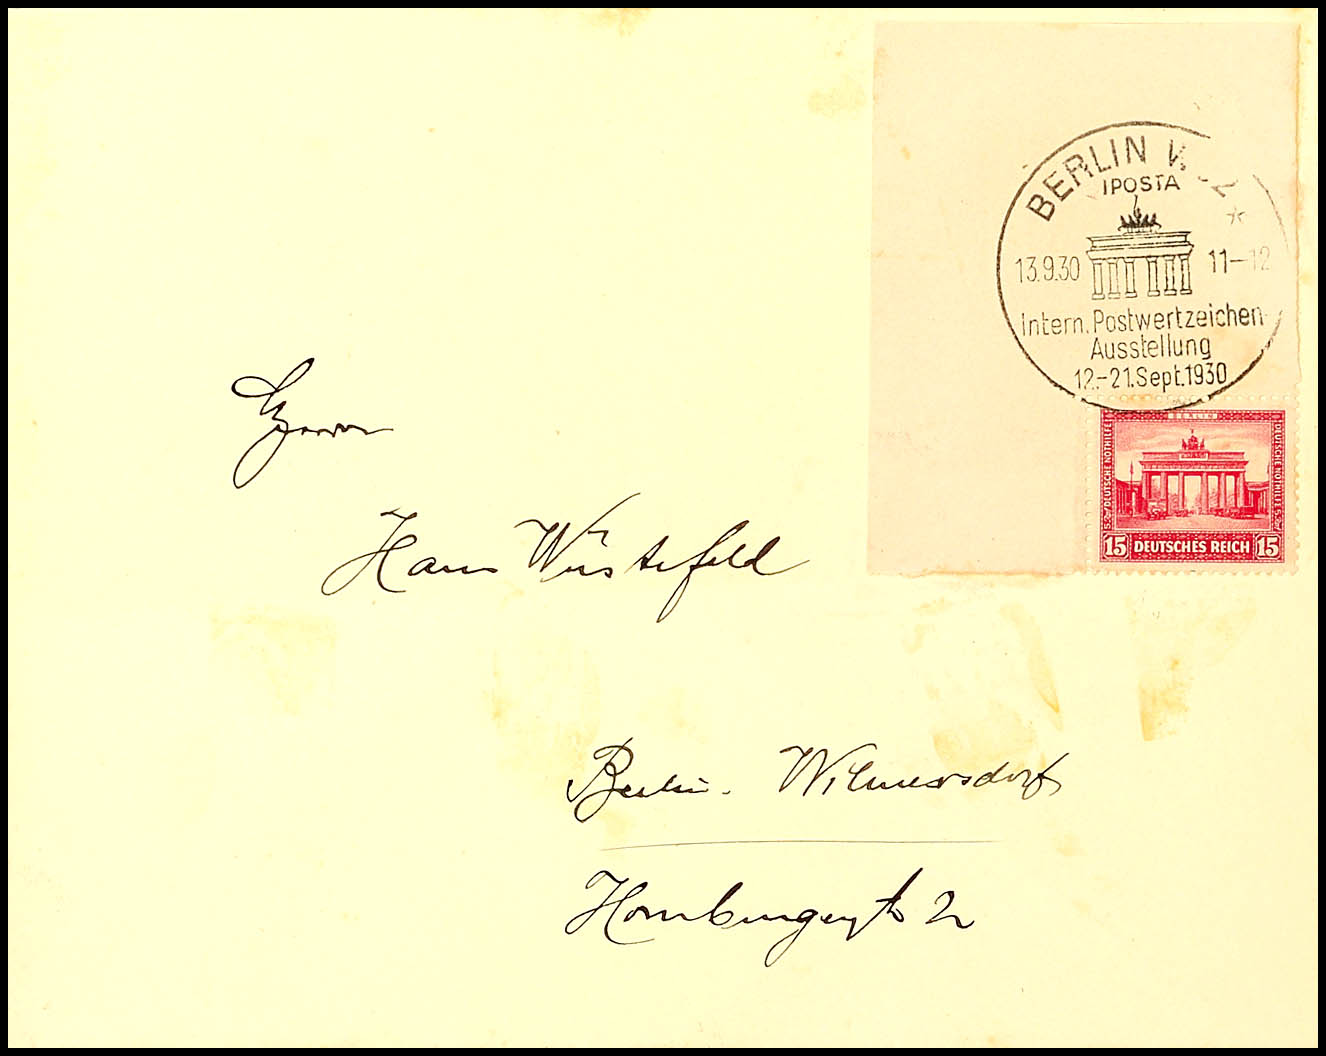 BERLIN W
IPOSTA
13.9.30 11-12
Intern. Postwertzeichen-
Ausstellung
12.-21.Sept.1930
BERLIN
DEUTSCHE NOTHILFE
DEUTSCHE NOTHILFE
15 DEUTSCHES REICH 15
Herrn
Hans Wüstefeld
Berlin-Wilmersdorf
Homburgerstr 2